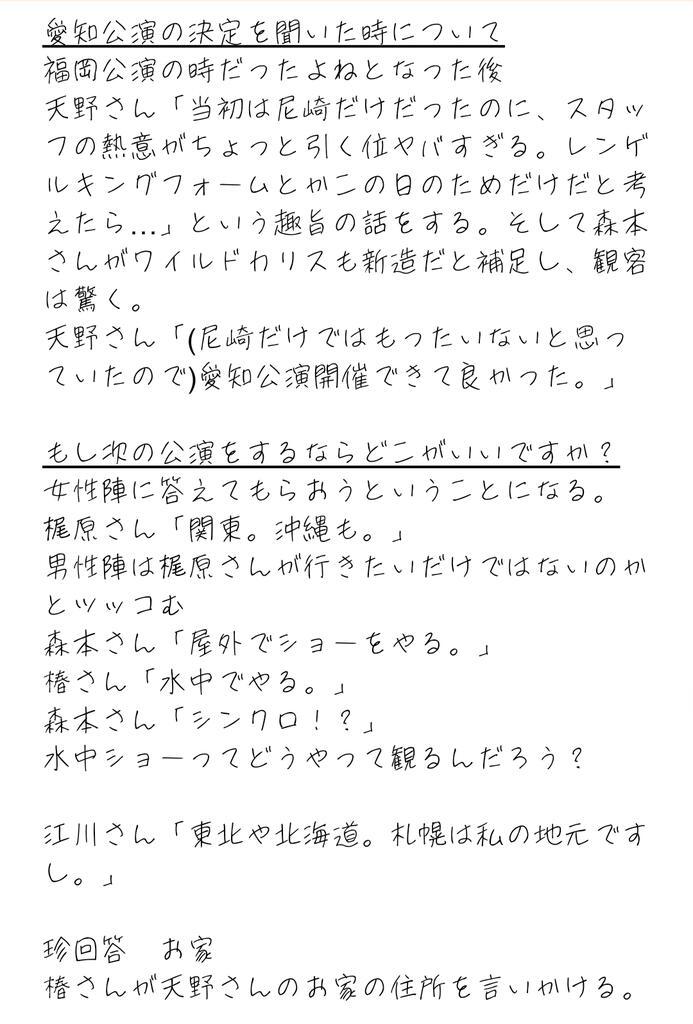 愛知公演の決定を聞いた時について
福岡公演の時だったよねとなった後
天野さん「当初は尼崎だけだったのに、スタッ
フの熱意がちょっと引く位ヤバすぎる。レンゲ
ルキングフォームとかこの日のためだけだと考
えたら…」という趣旨の話をする。そして森本
さんがワイルドカリスも新造だと補足し、観客
は驚く。
天野さん「(尼崎だけではもったいないと思っ
ていたので)愛知公演開催できて良かった。」
もし次の公演をするならどこがいいですか？
女性陣に答えてもらおうということになる。
梶原さん「関東。沖縄も。」
男性陣は梶原さんが行きたいだけではないのか
とツッコむ
森本さん「屋外でショーをやる。」
椿さん「水中でやる。」
森本さん「シンクロ！？」
水中ショーってどうやって観るんだろう？
江川さん「東北や北海道。札幌は私の地元です
し。」
珍回答　お家
椿さんが天野さんのお家の住所を言いかける。